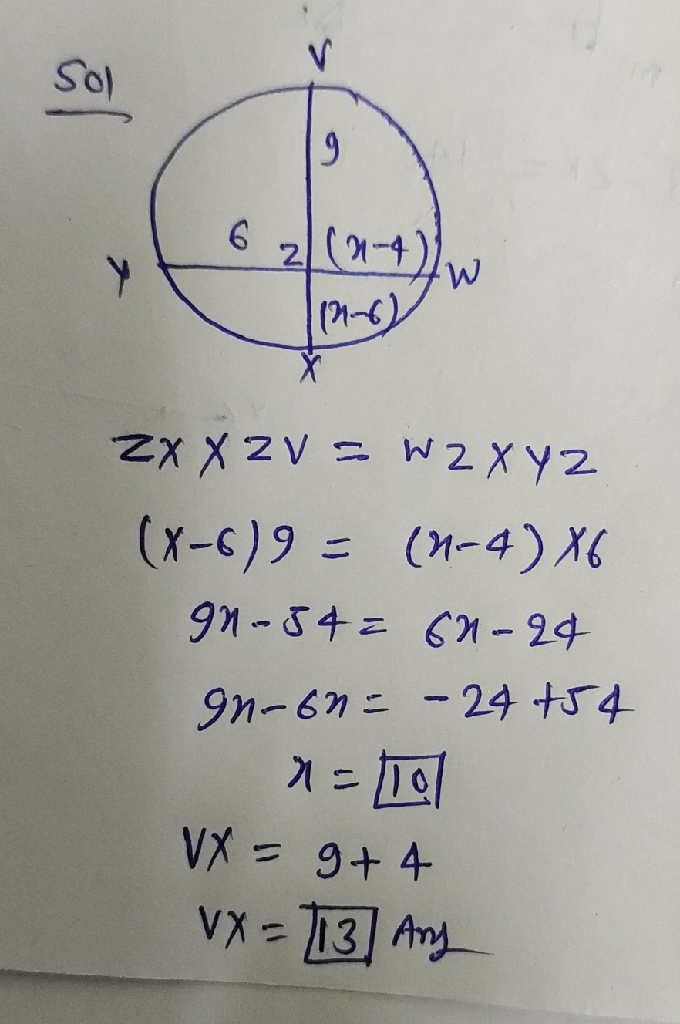 Sol
V
9
6 Z (x-4)
Y W
(x-6)
X
ZX X ZV = WZ X YZ
(X-6)9 = (x-4) X6
9x-54 = 6x-24
9x-6x = -24 +54
x = 10
VX = 9+4
VX = 13 Ans